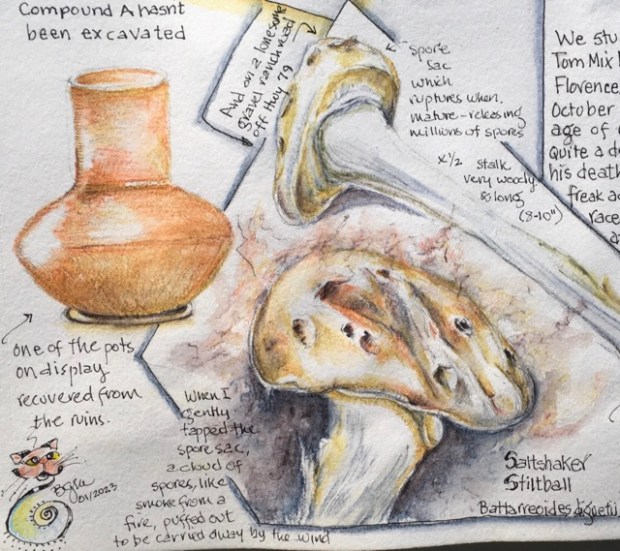 Compound A hasnt
been excavated
And on a lonesome
gravel ranch road
off Hwy 79
spore
sac
which
ruptures when
mature - releasing
millions of spores
x 1/2 stalk
very woody
& long
(8-10")
We stu
Tom Mix
Florence
October
age of
quite a d
his death
freak a
race
one of the pots
on display
recovered from
the ruins.
When I
gently
tapped the
spore sac,
a cloud of
spores, like
smoke from a
fire, puffed out
to be carried away by the wind
01/2023
Saltshaker
Stiltball
Battarreoides digueti